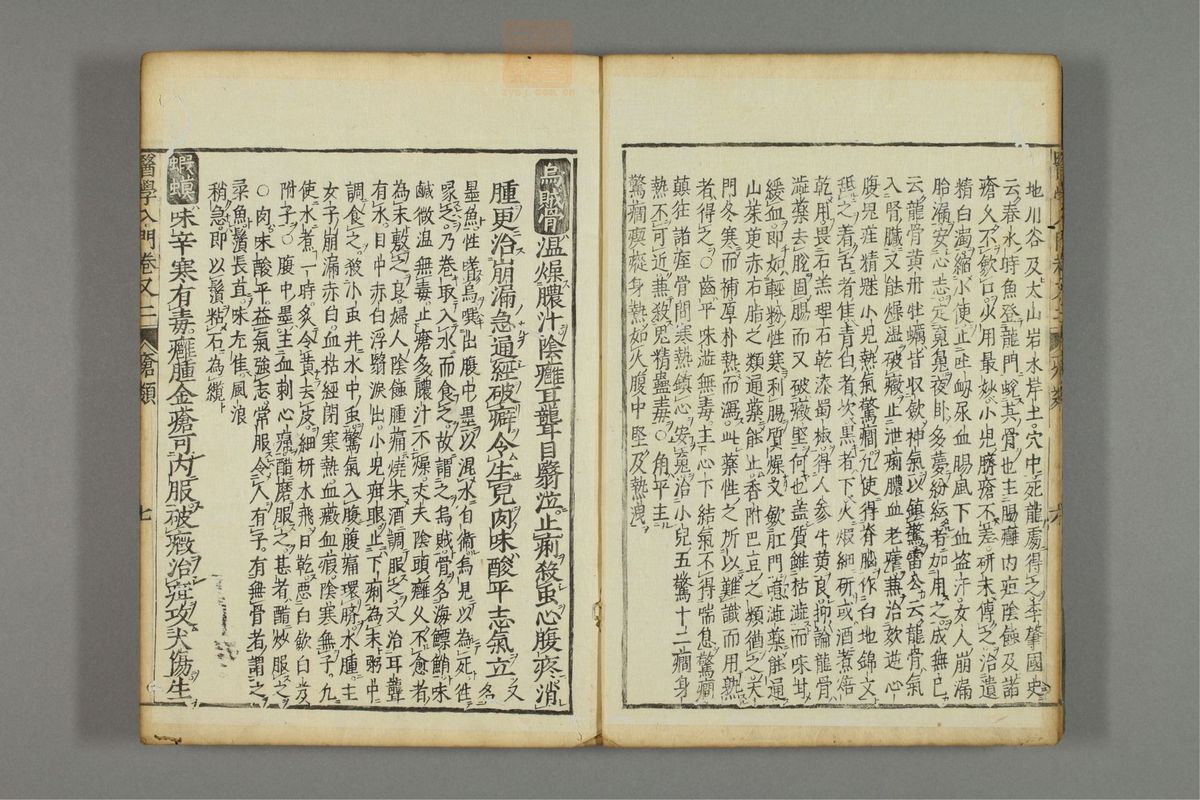 地川谷及太山岩水岸土穴中死龍處得之李肇國史
云春水時魚登龍門蛻其骨也主腸癰內疽陰蝕及諸
瘡久不斂口火用最妙小兒臍瘡不差研末傅之治遺
精白濁縮小便止吐衂尿血腸風下血盜汗女人崩漏
胎漏安心志定魂魄夜臥多夢紛紜者加用之成無已
云龍骨黃丹牡蠣皆収斂神氣以鎮驚雷公云龍骨氣
入腎臟又能燥濕破癥止泄痢膿血老瘧兼治效逆心
腹鬼疰精魅小兒熱氣驚癇凡使得脊腦作白地錦文
䑛之着舌者佳青白者次黑者下火煆細研或酒煮焙
乾用畏石羔理石乾漆蜀椒得人參牛黃良抑論龍骨
澁藥去脫固腸而又破癥堅何也盖質雖枯澁而味甘
緩血即如輕粉性寒利腸質燥又斂肛門意澁藥能通
山茱萸赤石脂之類通藥能止香附巴豆之類猶之天
門冬寒而補厚朴熱而瀉此藥性之所以難識而用熟
者得之〇齒平味澁無毒主心下結氣不得喘息驚癇
顛狂諸痓骨間寒熱鎮心安魂治小兒五驚十二癇身
熱不可近兼殺鬼精蠱毒〇角平主
驚癇瘈瘲身熱如火腹中堅及熱洩
烏賊骨温燥膿汁陰癰耳聾目翳泣止痢殺虫心腹疼消
腫更治崩漏急通經破癖令生兒肉味酸平志氣立又名
墨魚性嗜烏噀出腹中墨以混水自衛烏見以為死往
啄之乃卷取入水而食之故謂之烏賊骨名海鰾鮹味
鹹微温無毒止瘡多膿汁不燥丈夫陰頭癰久不愈者
為末敷之良婦人陰蝕腫痛燒末酒調服之又治耳聾
有水目中赤白浮翳淚出小兒痢眼止下痢為末粥中
調食之殺小虫井水中虫驚氣入腹腹痛環臍水腫主
女子崩漏赤白血枯經閉寒熱血癥血瘕陰寒無子凡
使水煮一時炙令黃去皮細研水飛日乾惡白斂白芨
附子〇腹中墨主血刺心痛醋磨服之甚者醋炒服之
〇肉味酸平益氣強志常服令人有子有無骨者謂之
柔魚鬚長直味尤佳風浪
稍急即以鬚粘石為纜
蝦蟆味辛寒有毒癰腫金瘡可內服破癥治疰攻犬傷生
醫學入門卷又二
瘡類
七